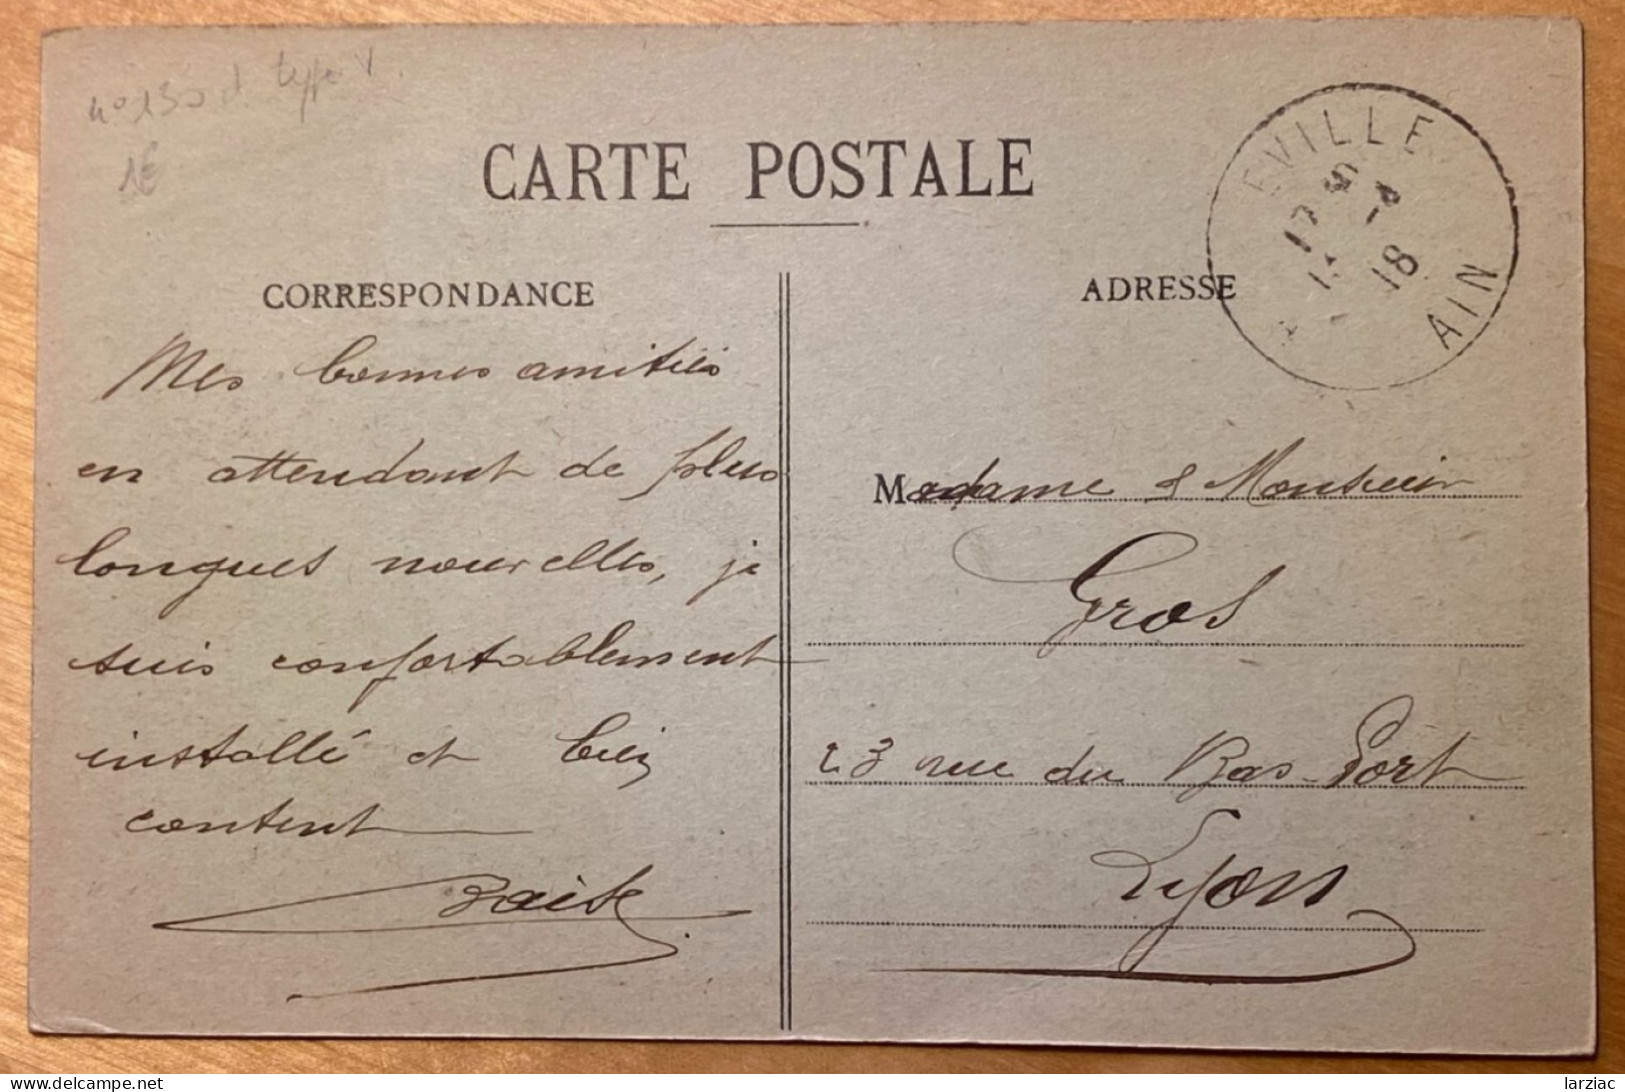 n° 130 d. type V.
1€
CARTE POSTALE
EVILLE
18
AIN
CORRESPONDANCE
Mes bonnes amitiés
en attendant de plus
longues nouvelles, je
suis confortablement
installé et bien
content
ADRESSE
Madame & Monsieur
Gros
23 rue du Bas-Port
Lyon
larziac